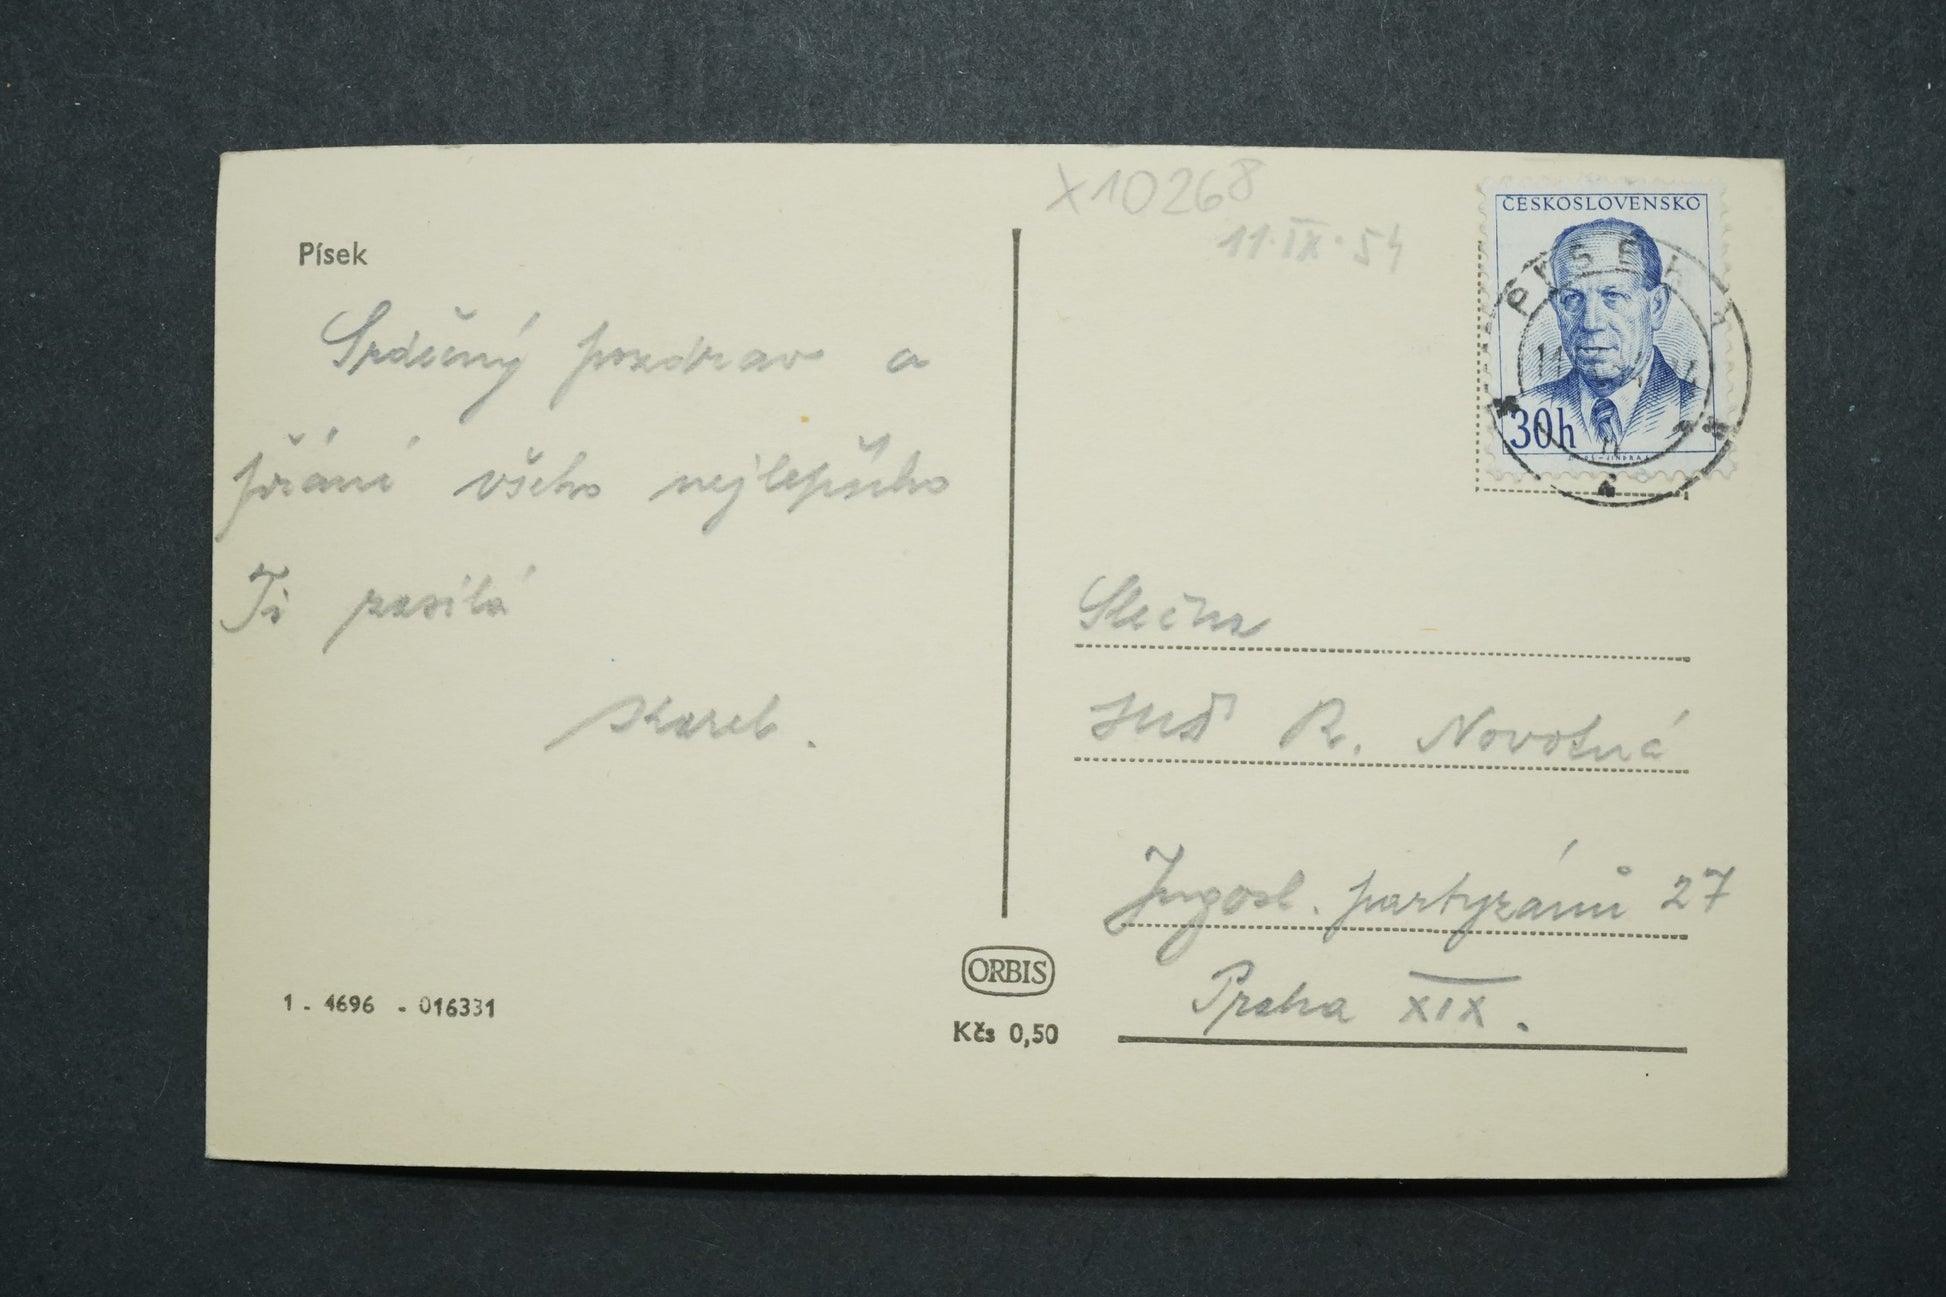 Písek
Srdečný pozdrav a
přání všeho nejlepšího
Ti zasílá
Karel.
1 - 4696 - 016331
ORBIS
Kčs 0,50
X10268
11.IX.54
ČESKOSLOVENSKO
PÍSEK 1
30h
Slečna
R. Novotná
Jugosl. partyzánů 27
Praha XIX.